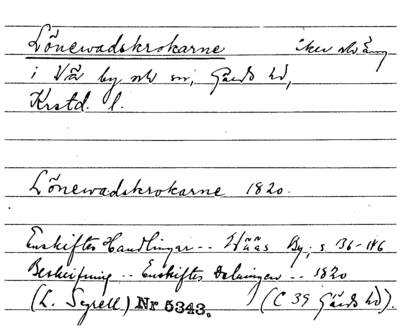 Lönewadskrokarne åker och äng
i Vä by och sn, Gärds hd,
Krstd. l.
Lönewadskrokarne 1820.
Enskiftes Handlingar -- Wääs By; s 136-186
Beskrifning -- Enskiftes Delningen -- 1820
(L. Segrell) Nr 5343. (C 39 Gärds hd).